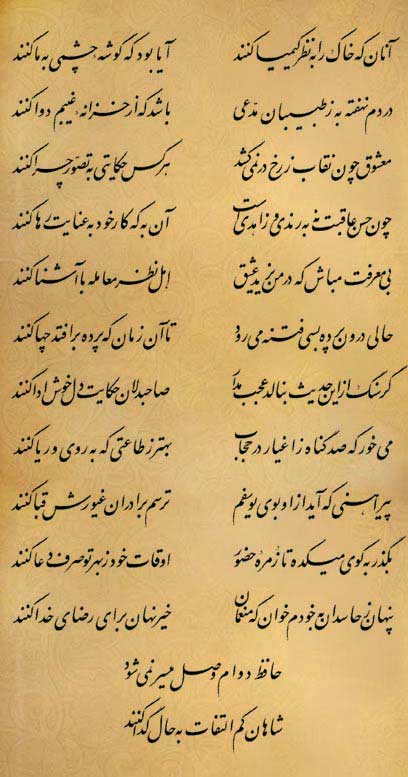 آنان که خاک را به نظر کیمیا کنند آیا بود که گوشه چشمی به ما کنند
دردم نهفته به ز طبیبان مدّعی باشد که از خزانه غیبم دوا کنند
معشوق چون نقاب ز رخ در نمی‌کشد هر کس حکایتی به تصوّر چرا کنند
چون حسن عاقبت نه به رندی و زاهدی است آن به که کار خود به عنایت رها کنند
بی معرفت مباش که در من یزید عشق اهل نظر معامله با آشنا کنند
حالی درون پرده بسی فتنه می‌رود تا آن زمان که پرده برافتد چها کنند
گر سنگ از این حدیث بنالد عجب مدار صاحبدلان حکایت دل خوش ادا کنند
می خور که صد گناه ز اغیار در حجاب بهتر ز طاعتی که به روی و ریا کنند
پیراهنی که آید از او بوی یوسفم ترسم برادران غیورش قبا کنند
بگذر به کوی میکده تا زمره حضور اوقات خود ز بهر تو صرف دعا کنند
پنهان ز حاسدان به خودم خوان که منعمان خیر نهان برای رضای خدا کنند
حافظ دوام وصل میسر نمی‌شود
شاهان کم التفات به حال گدا کنند